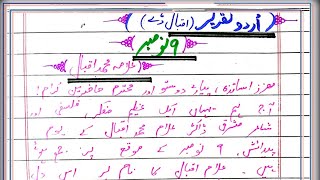 اُردو تقریر (اقبال ڈے)
۹ نومبر
علامہ محمد اقبال
معزز اساتذہ، پیارے دوستو اور محترم حاضرین کرام!
آج ہم یہاں ایک عظیم مفکر، فلسفی اور
شاعر مشرق ڈاکٹر علامہ محمد اقبال کے یوم
پیدائش، ۹ نومبر کے موقع پر جمع ہوئے
ہیں۔ علامہ اقبال کا نام ہر اس دل